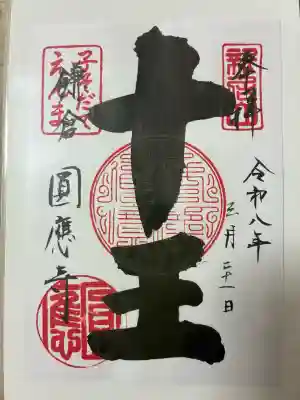 奉拝
令和八年
三月二十一日
十王
子そだて
えんま
鎌倉
圓應寺